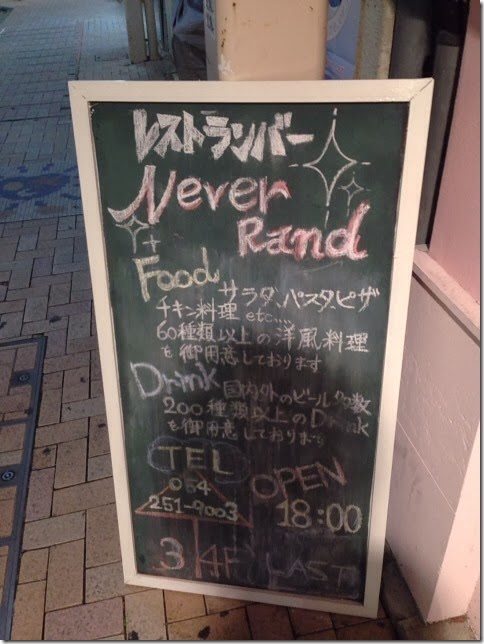 レストランバー
Never
Rand
Food
サラダ、パスタ、ピザ
チキン料理 etc....
60種類以上の洋風料理
を御用意しております
Drink
国内外のビール多数
200種類以上のDrink
を御用意しております
TEL
054
251-9003
OPEN
18:00
3
4F
LAST